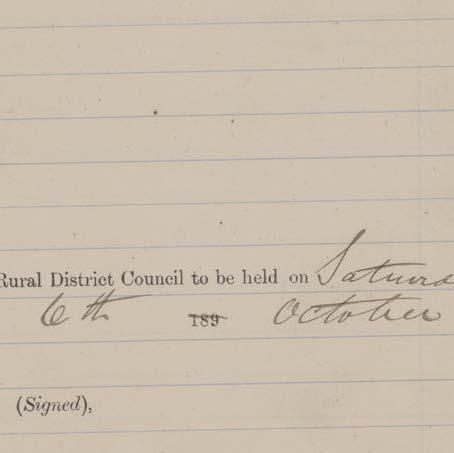 Rural District Council to be held on Saturda
6th 189 October
(Signed),